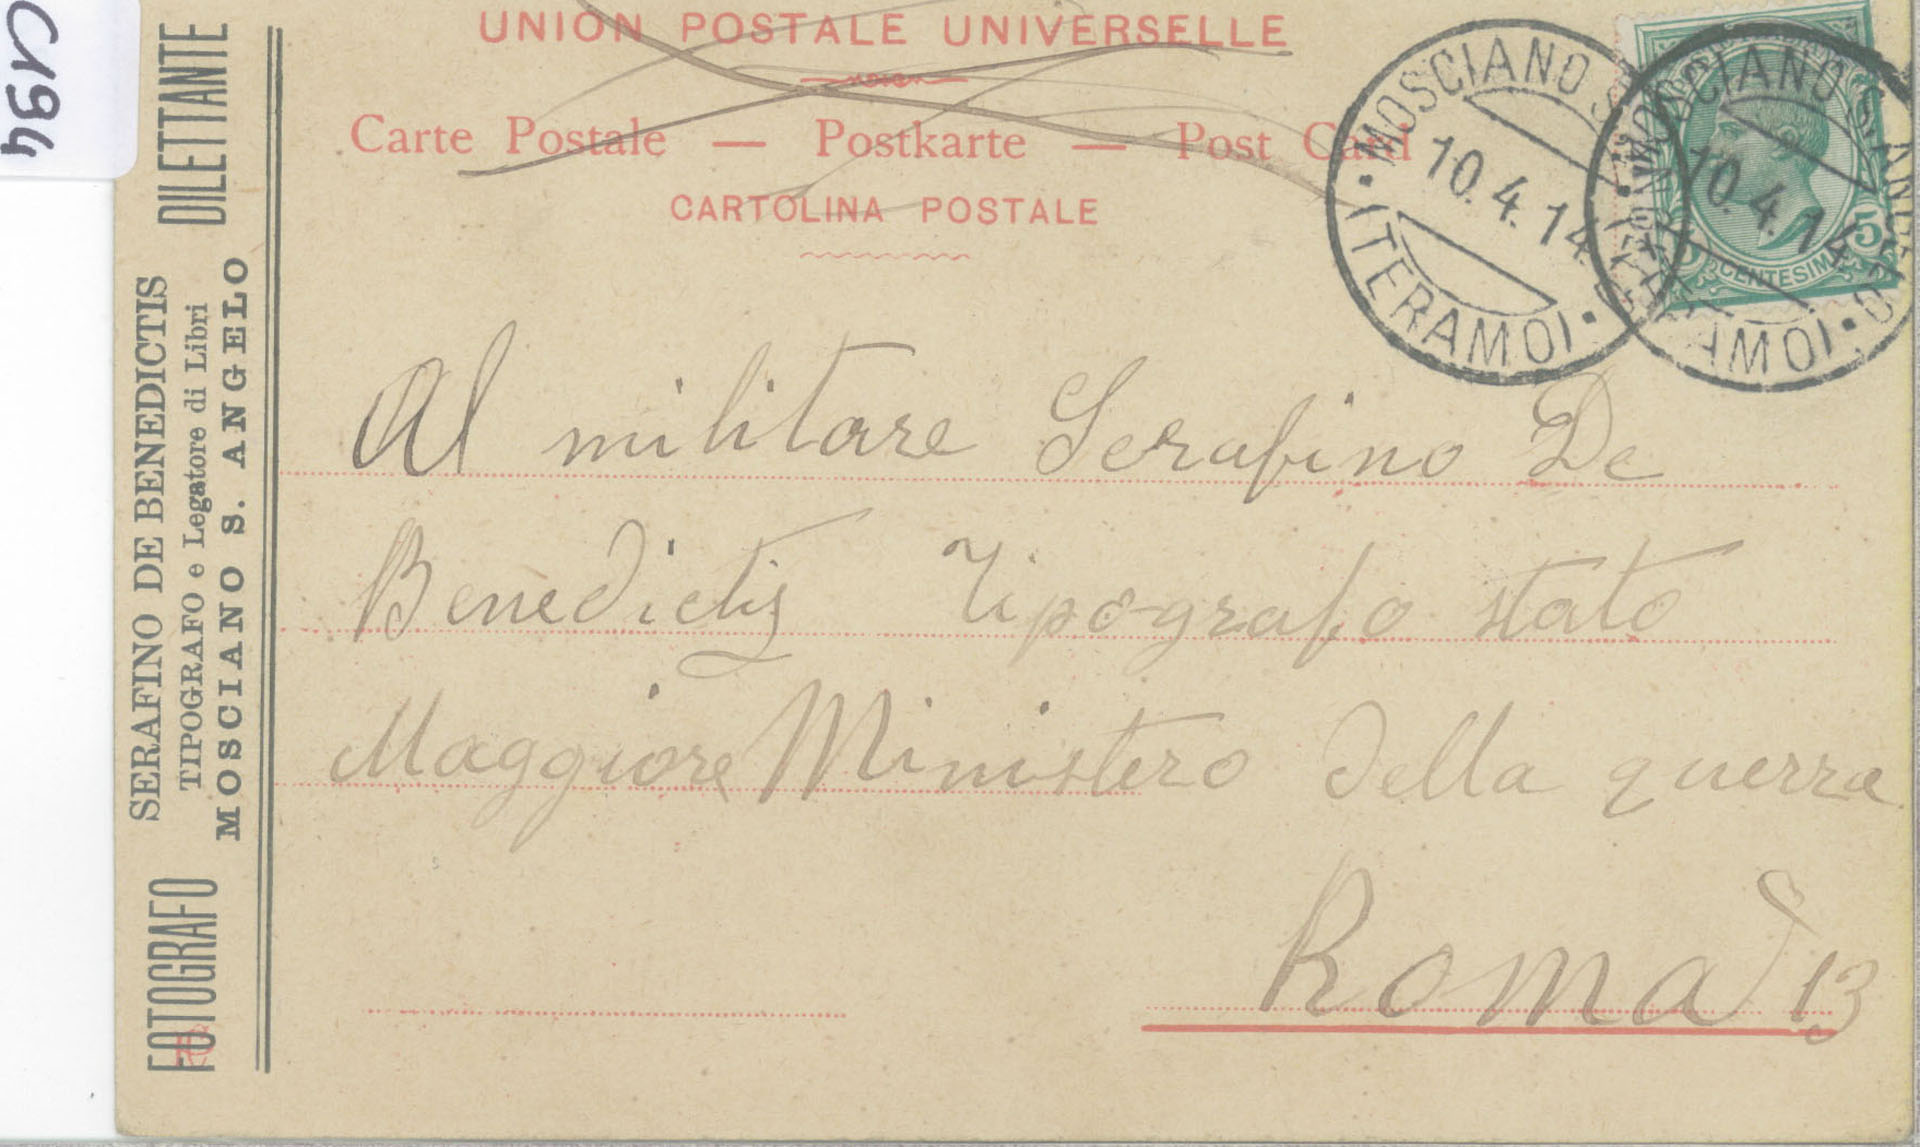 C194
UNION POSTALE UNIVERSELLE
Carte Postale — Postkarte — Post Card
CARTOLINA POSTALE
MOSCIANO S.
10.4.14
(TERAMO)
MOSCIANO S. ANGELO
10.4.14
CENTESIMI
5
FOTOGRAFO DILETTANTE
SERAFINO DE BENEDICTIS
TIPOGRAFO e Legatore di Libri
MOSCIANO S. ANGELO
Al militare Serafino De
Benedictis Tipografo stato
Maggiore Ministero della guerra
Roma 13